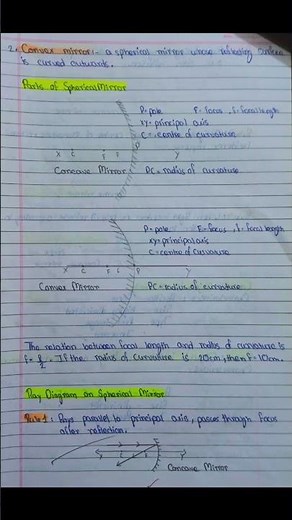 2. Convex mirror:- a spherical mirror whose reflecting surface
is curved outwards.
Parts of Spherical Mirror
P= pole F= focus, f= focal length
xy= principal axis
C = centre of curvature
X C F P Y
Concave Mirror PC= radius of curvature
P= pole F= focus, f= focal length
xy= principal axis
C= centre of curvature
X C F P Y
Convex Mirror PC= radius of curvature
The relation between focal length and radius of curvature is
If the radius of curvature is 20cm, then f= 10cm.
Ray Diagram on Spherical Mirror
Rule 1: Rays parallel to principal axis, passes through focus
after reflection.
Concave Mirror